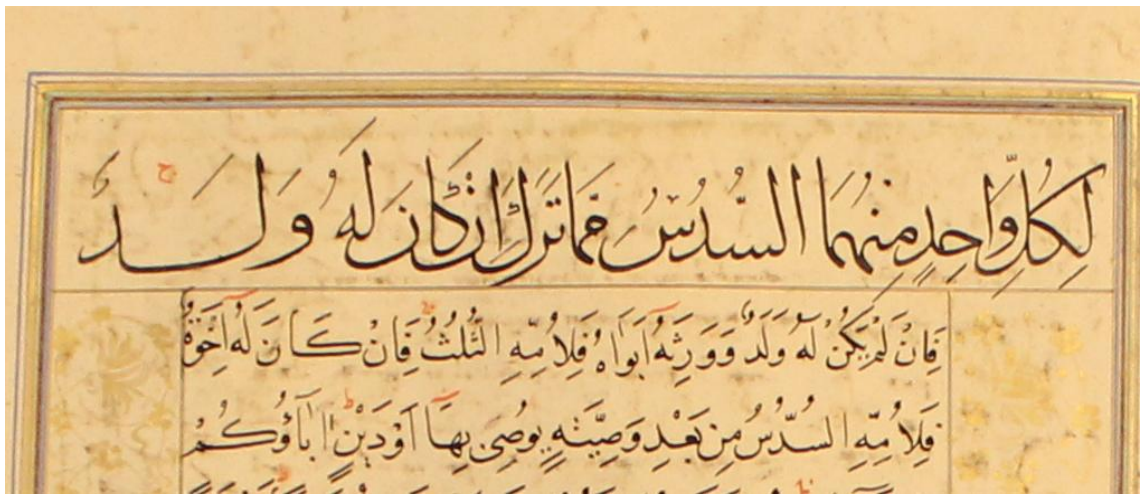 لِكُلِّ وَّاحِدٍ مِنْهُمَا السُّدُسُ مِمَّا تَرَكَ اِنْ كَانَ لَهُ وَلَدٌ
فَاِنْ لَمْ يَكُنْ لَهُ وَلَدٌ وَوَرِثَهُ اَبَوَاهُ فَلِاُمِّهِ الثُّلُثُ فَاِنْ كَانَ لَهُ اِخْوَةٌ
فَلِاُمِّهِ السُّدُسُ مِنْ بَعْدِ وَصِيَّةٍ يُوصِى بِهَا اَوْ دَيْنٍ اٰبَاؤُكُمْ